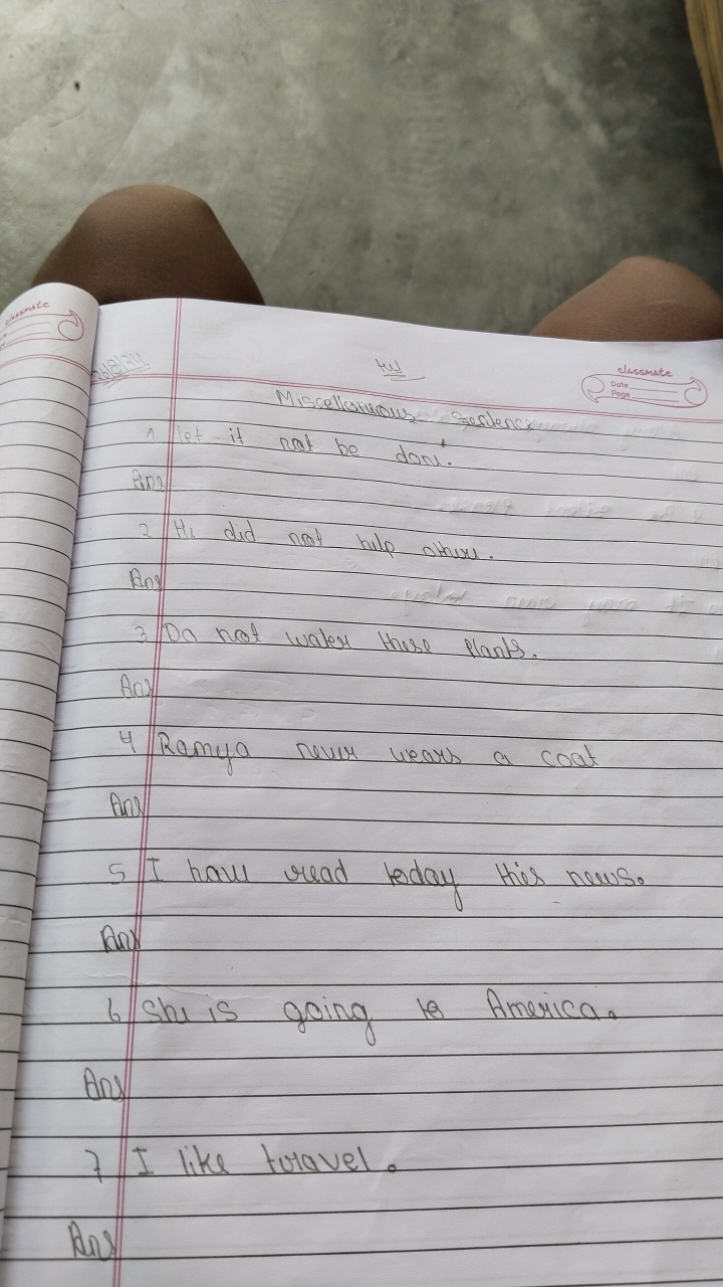 classmate
HW
classmate
Date
Page
Miscellaneous Sentence
1 let it not be done.
Ans
2 He did not help others.
Ans
3 Do not water these plants.
Ans
4 Ramya never wears a coat
Ans
5 I have read today this news.
Ans
6 She is going to America.
Ans
7 I like travel.
Ans